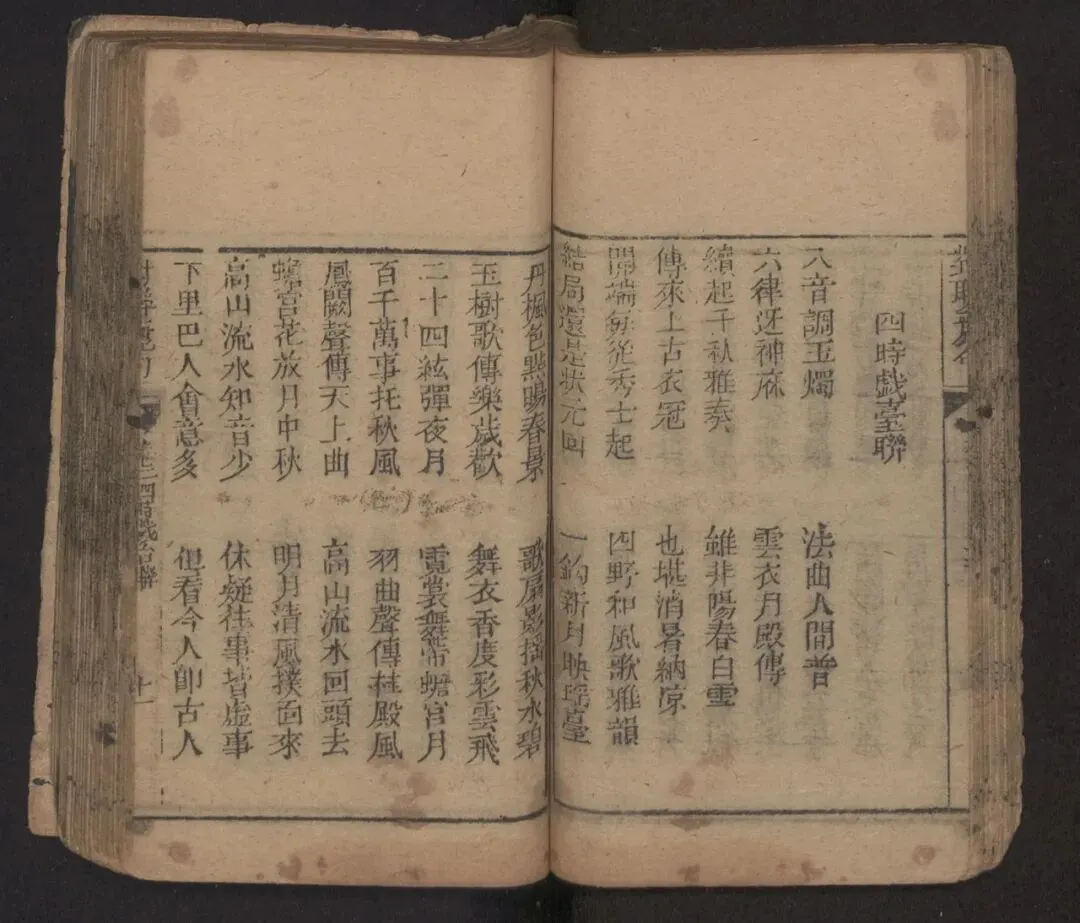 四時戯臺聯
八音調玉燭　法曲人間普
六律迓神庥　雲衣月殿傳
續起千秋雅奏　雖非陽春白雪
傳來上古衣冠　也堪消暑納凉
開端每從秀士起　四野和風歌雅韻
結局還是状元回　一鈎新月映瑶臺
丹楓色點陽春景　歌扇影揺秋水碧
玉樹歌傳樂歲歡　舞衣香度彩雲飛
二十四絃彈夜月　霓裳舞蟾宮月
百千萬事托秋風　羽曲聲傳桂殿風
鳳闕聲傳天上曲　高山流水回頭去
蟾宮花放月中秋　明月清風撲面來
高山流水知音少　休疑往事皆虛事
下里巴人會意多　但看今人即古人
四時戯台聯　十一